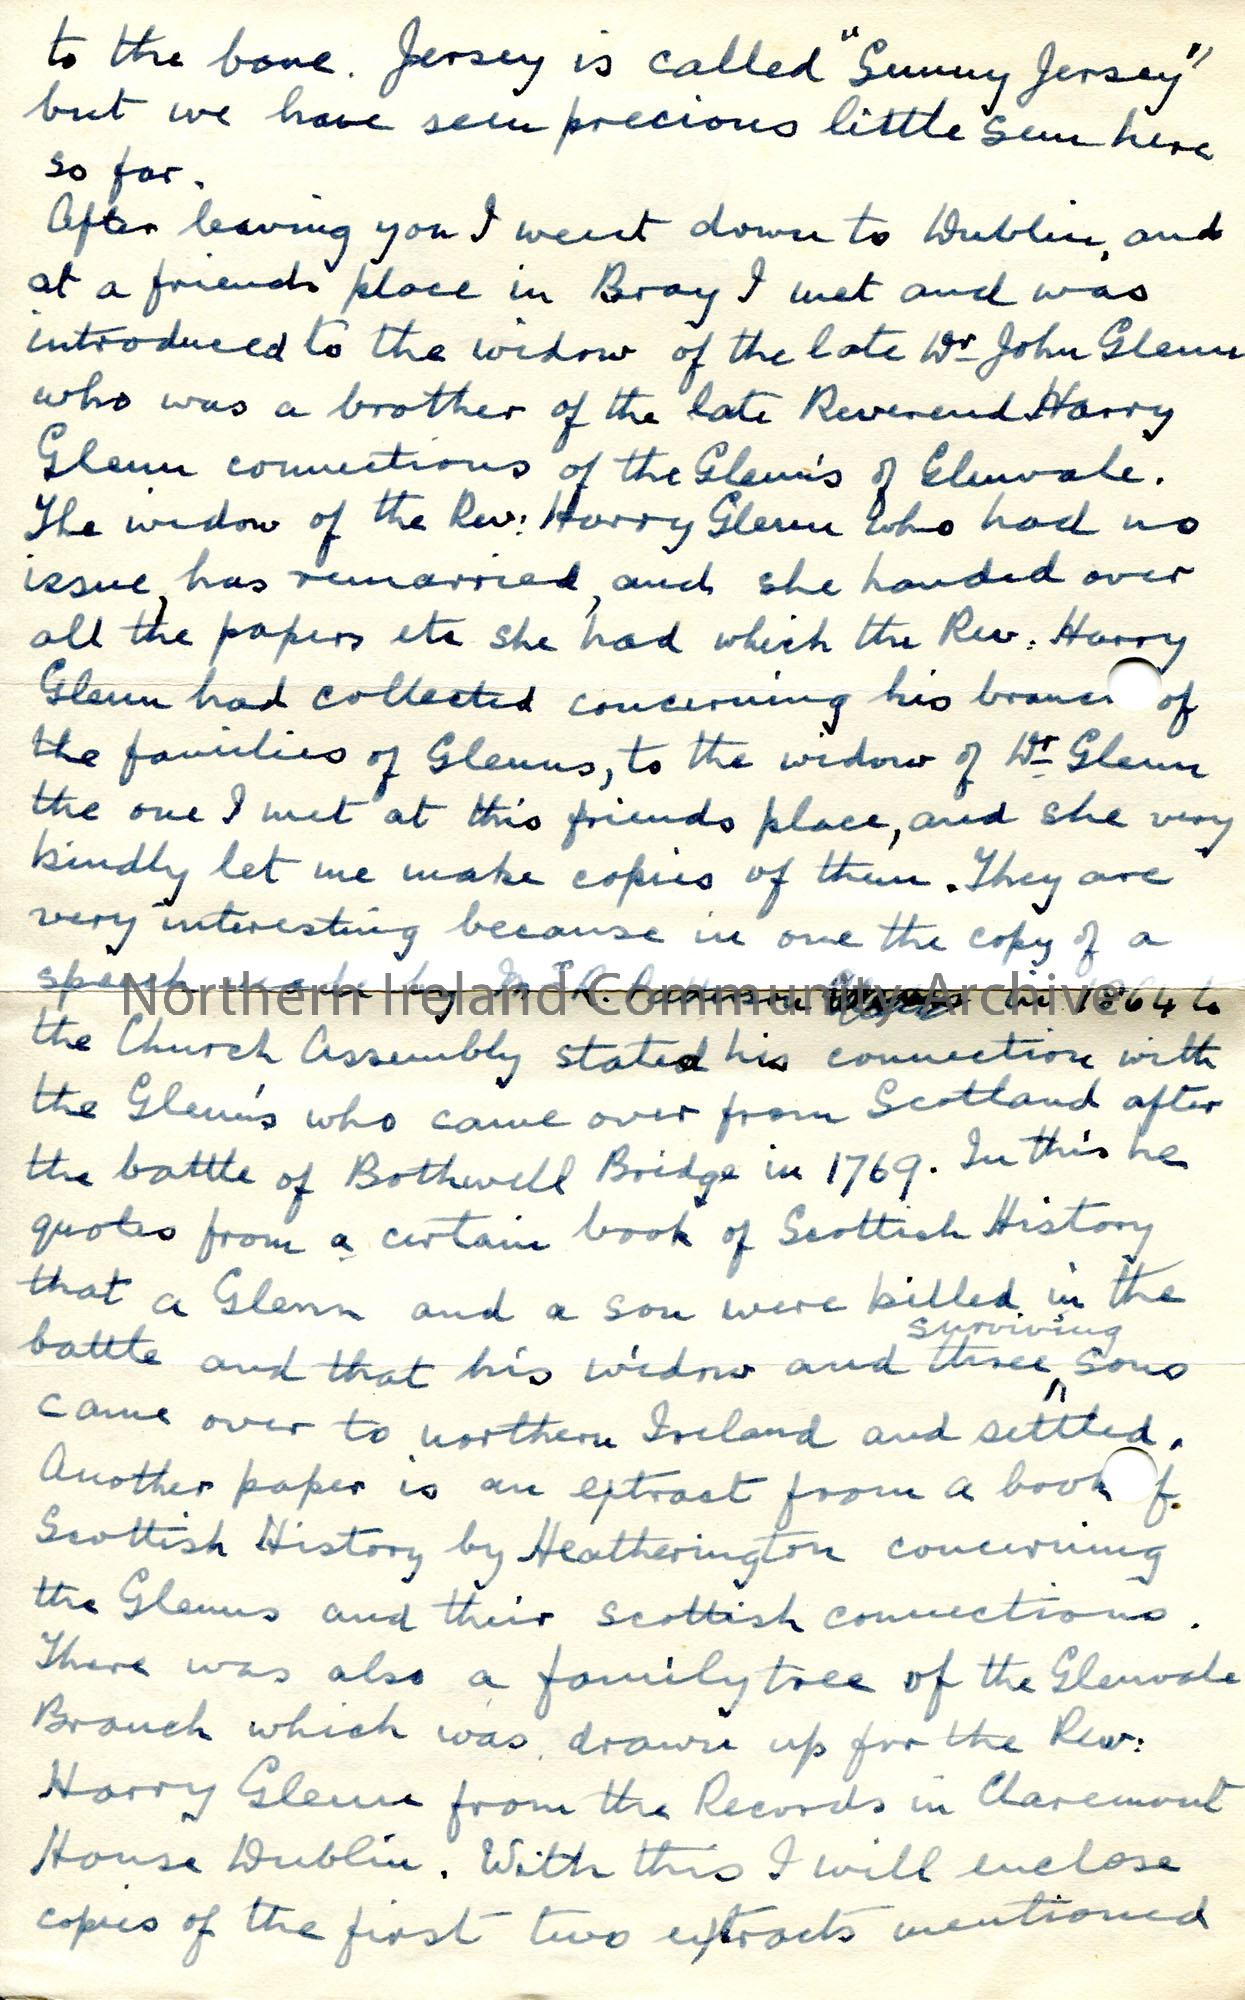 to the bone. Jersey is called "Sunny Jersey"
but we have seen precious little sun here
so far.
After leaving you I went down to Dublin, and
at a friends place in Bray I met and was
introduced to the widow of the late Dr John Glenn
who was a brother of the late Reverend Harry
Glenn connections of the Glenn's of Glenvale.
The widow of the Rev: Harry Glenn who had no
issue, has remarried, and she handed over
all the papers etc she had which the Rev: Harry
Glenn had collected concerning his branc of
the families of Glenns, to the widow of Dr Glenn
the one I met at this friends place, and she very
kindly let me make copies of them. They are
very interesting because in one the copy of a
speech made by R. in 1864 to
Northern Ireland Community Archive
the Church Assembly stated his connection with
the Glenn's who came over from Scotland after
the battle of Bothwell Bridge in 1769. In this he
quotes from a certain book of Scottish History
that a Glenn and a son were killed in the
battle and that his widow and three surviving sons
came over to northern Ireland and settled.
Another paper is an extract from a book f
Scottish History by Heatherington concerning
the Glenns and their scottish connections.
There was also a family tree of the Glenvale
Branch which was drawn up for the Rev:
Harry Glenn from the Records in Claremont
House Dublin. With this I will enclose
copies of the first two extracts mentioned